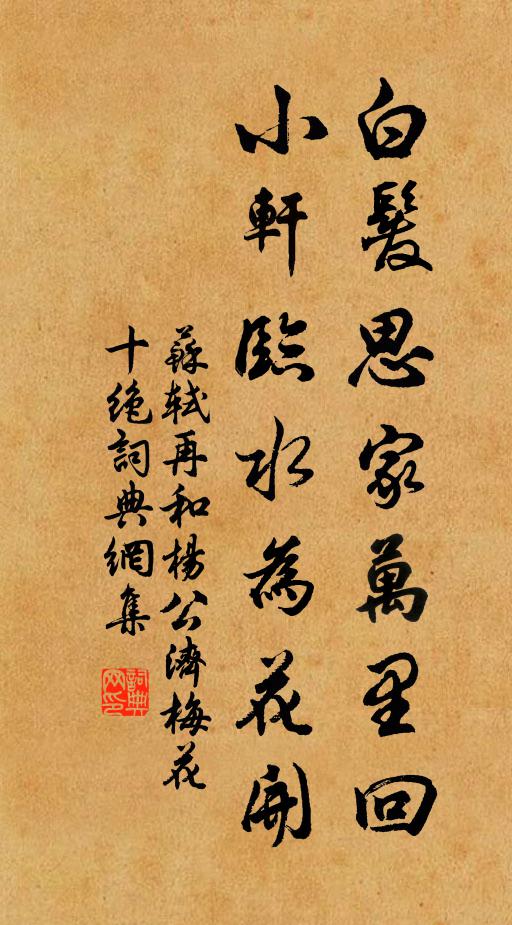 白髮思家萬里回
小軒臨水為花開
蘇軾再和楊公濟梅花
十絕詞典網集
詞典网印